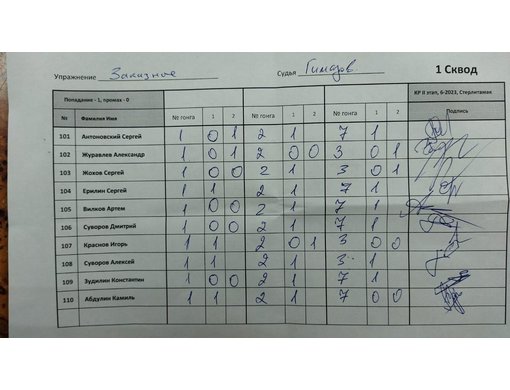 Упражнение Заказное Судья Гимазов 1 Сквод
Попадание - 1, промах - 0 КР II этап, 6-2023, Стерлитамак
№ Фамилия Имя № гонга 1 2 № гонга 1 2 № гонга 1 2 Подпись
101 Антоновский Сергей 1 0 1 2 1 7 1
102 Журавлев Александр 1 0 1 2 0 0 3 0 1
103 Жохов Сергей 1 0 0 2 1 3 0 1
104 Ерилин Сергей 1 1 2 1 7 1
105 Вилков Артем 1 0 0 2 1 7 1
106 Суворов Дмитрий 1 0 0 2 1 7 1
107 Краснов Игорь 1 1 2 0 1 3 0 0
108 Суворов Алексей 1 1 2 1 3 1
109 Зудилин Константин 1 0 0 2 1 7 1
110 Абдулин Камиль 1 1 2 1 7 0 0